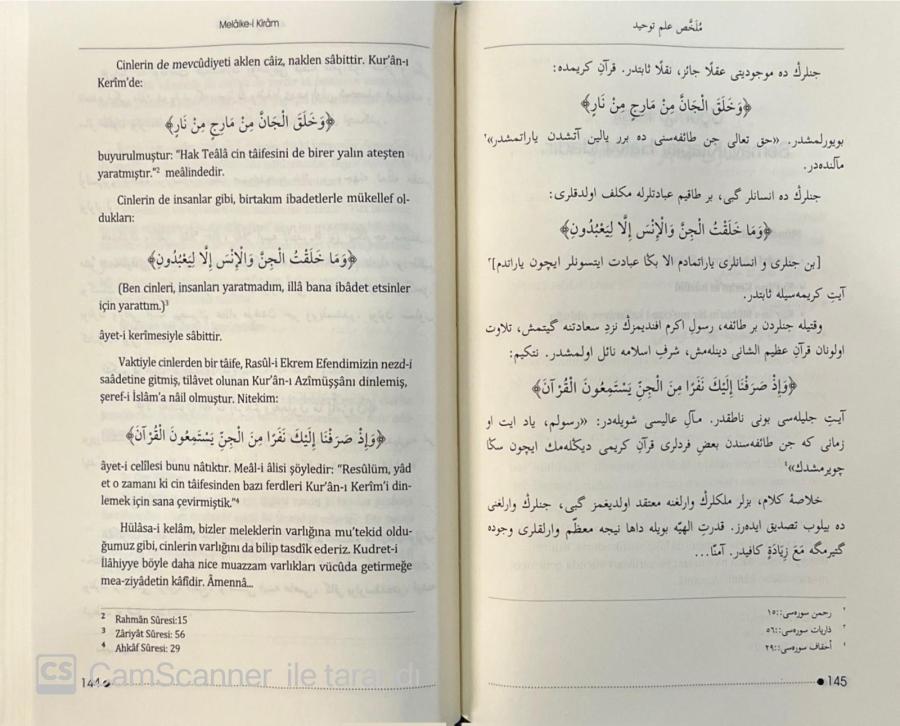 Melâike-i Kirâm
Cinlerin de mevcûdiyeti aklen câiz, naklen sâbittir. Kur'ân-ı
Kerîm'de:
﴿وَخَلَقَ الْجَانَّ مِنْ مَارِجٍ مِنْ نَارٍ﴾
buyurulmuştur: "Hak Teâlâ cin tâifesini de birer yalın ateşten
yaratmıştır."² meâlindedir.
Cinlerin de insanlar gibi, birtakım ibadetlerle mükellef ol-
dukları:
﴿وَمَا خَلَقْتُ الْجِنَّ وَالْإِنْسَ إِلَّا لِيَعْبُدُونِ﴾
(Ben cinleri, insanları yaratmadım, illâ bana ibâdet etsinler
için yarattım.)³
âyet-i kerîmesiyle sâbittir.
Vaktiyle cinlerden bir tâife, Rasûl-i Ekrem Efendimizin nezd-i
saâdetine gitmiş, tilâvet olunan Kur'ân-ı Azîmüşşânı dinlemiş,
şeref-i İslâm'a nâil olmuştur. Nitekim:
﴿وَإِذْ صَرَفْنَا إِلَيْكَ نَفَرًا مِنَ الْجِنِّ يَسْتَمِعُونَ الْقُرْآنَ﴾
âyet-i celîlesi bunu nâtıktır. Meâl-i âlisi şöyledir: "Resûlüm, yâd
et o zamanı ki cin tâifesinden bazı ferdleri Kur'ân-ı Kerîm'i din-
lemek için sana çevirmiştik."⁴
Hülâsa-i kelâm, bizler meleklerin varlığına mu'tekid oldu-
ğumuz gibi, cinlerin varlığını da bilip tasdîk ederiz. Kudret-i
İlâhiyye böyle daha nice muazzam varlıkları vücûda getirmeğe
mea-ziyâdetin kâfîdir. Âmennâ...
² Rahmân Sûresi:15
³ Zâriyât Sûresi: 56
⁴ Ahkâf Sûresi: 29
144
CS CamScanner ile tarandı
مُلَخَّص علم توحيد
جنلرڭ ده موجوديتى عقلًا جائز، نقلًا ثابتدر. قرآنِ كريمده:
﴿وَخَلَقَ الْجَانَّ مِنْ مَارِجٍ مِنْ نَارٍ﴾
بويورلمشدر. «حق تعالى جن طائفه‌سنى ده برر يالين آتشدن ياراتمشدر»²
مآلنده‌در.
جنلرڭ ده انسانلر گبى، بر طاقيم عبادتلرله مكلف اولدقلرى:
﴿وَمَا خَلَقْتُ الْجِنَّ وَالْإِنْسَ إِلَّا لِيَعْبُدُونِ﴾
[بن جنلرى و انسانلرى ياراتمادم الا بڭا عبادت ايتسونلر ايچون ياراتدم]³
آيتِ كريمه‌سيله ثابتدر.
وقتيله جنلردن بر طائفه، رسولِ اكرم افنديمزڭ نزدِ سعادتنه گيتمش، تلاوت
اولونان قرآنِ عظيم الشانى دينله‌مش، شرفِ اسلامه نائل اولمشدر. نتكيم:
﴿وَإِذْ صَرَفْنَا إِلَيْكَ نَفَرًا مِنَ الْجِنِّ يَسْتَمِعُونَ الْقُرْآنَ﴾
آيتِ جليله‌سى بونى ناطقدر. مآلِ عاليسى شويله‌در: «رسولم، ياد ايت او
زمانى كه جن طائفه‌سندن بعضِ فردلرى قرآنِ كريمى ديڭله‌مك ايچون سڭا
چويرمشدك»⁴
خلاصهٔ كلام، بزلر ملكلرڭ وارلغنه معتقد اولديغمز گبى، جنلرڭ وارلغنى
ده بيلوب تصديق ايده‌رز. قدرتِ الهيّه بويله داها نيجه معظّم وارلقلرى وجوده
گتيرمگه مَعَ زِيَادَةٍ كافيدر. آمنّا...
² رحمن سوره‌سى:١٥
³ ذاريات سوره‌سى:٥٦
⁴ أحقاف سوره‌سى:٢٩
145